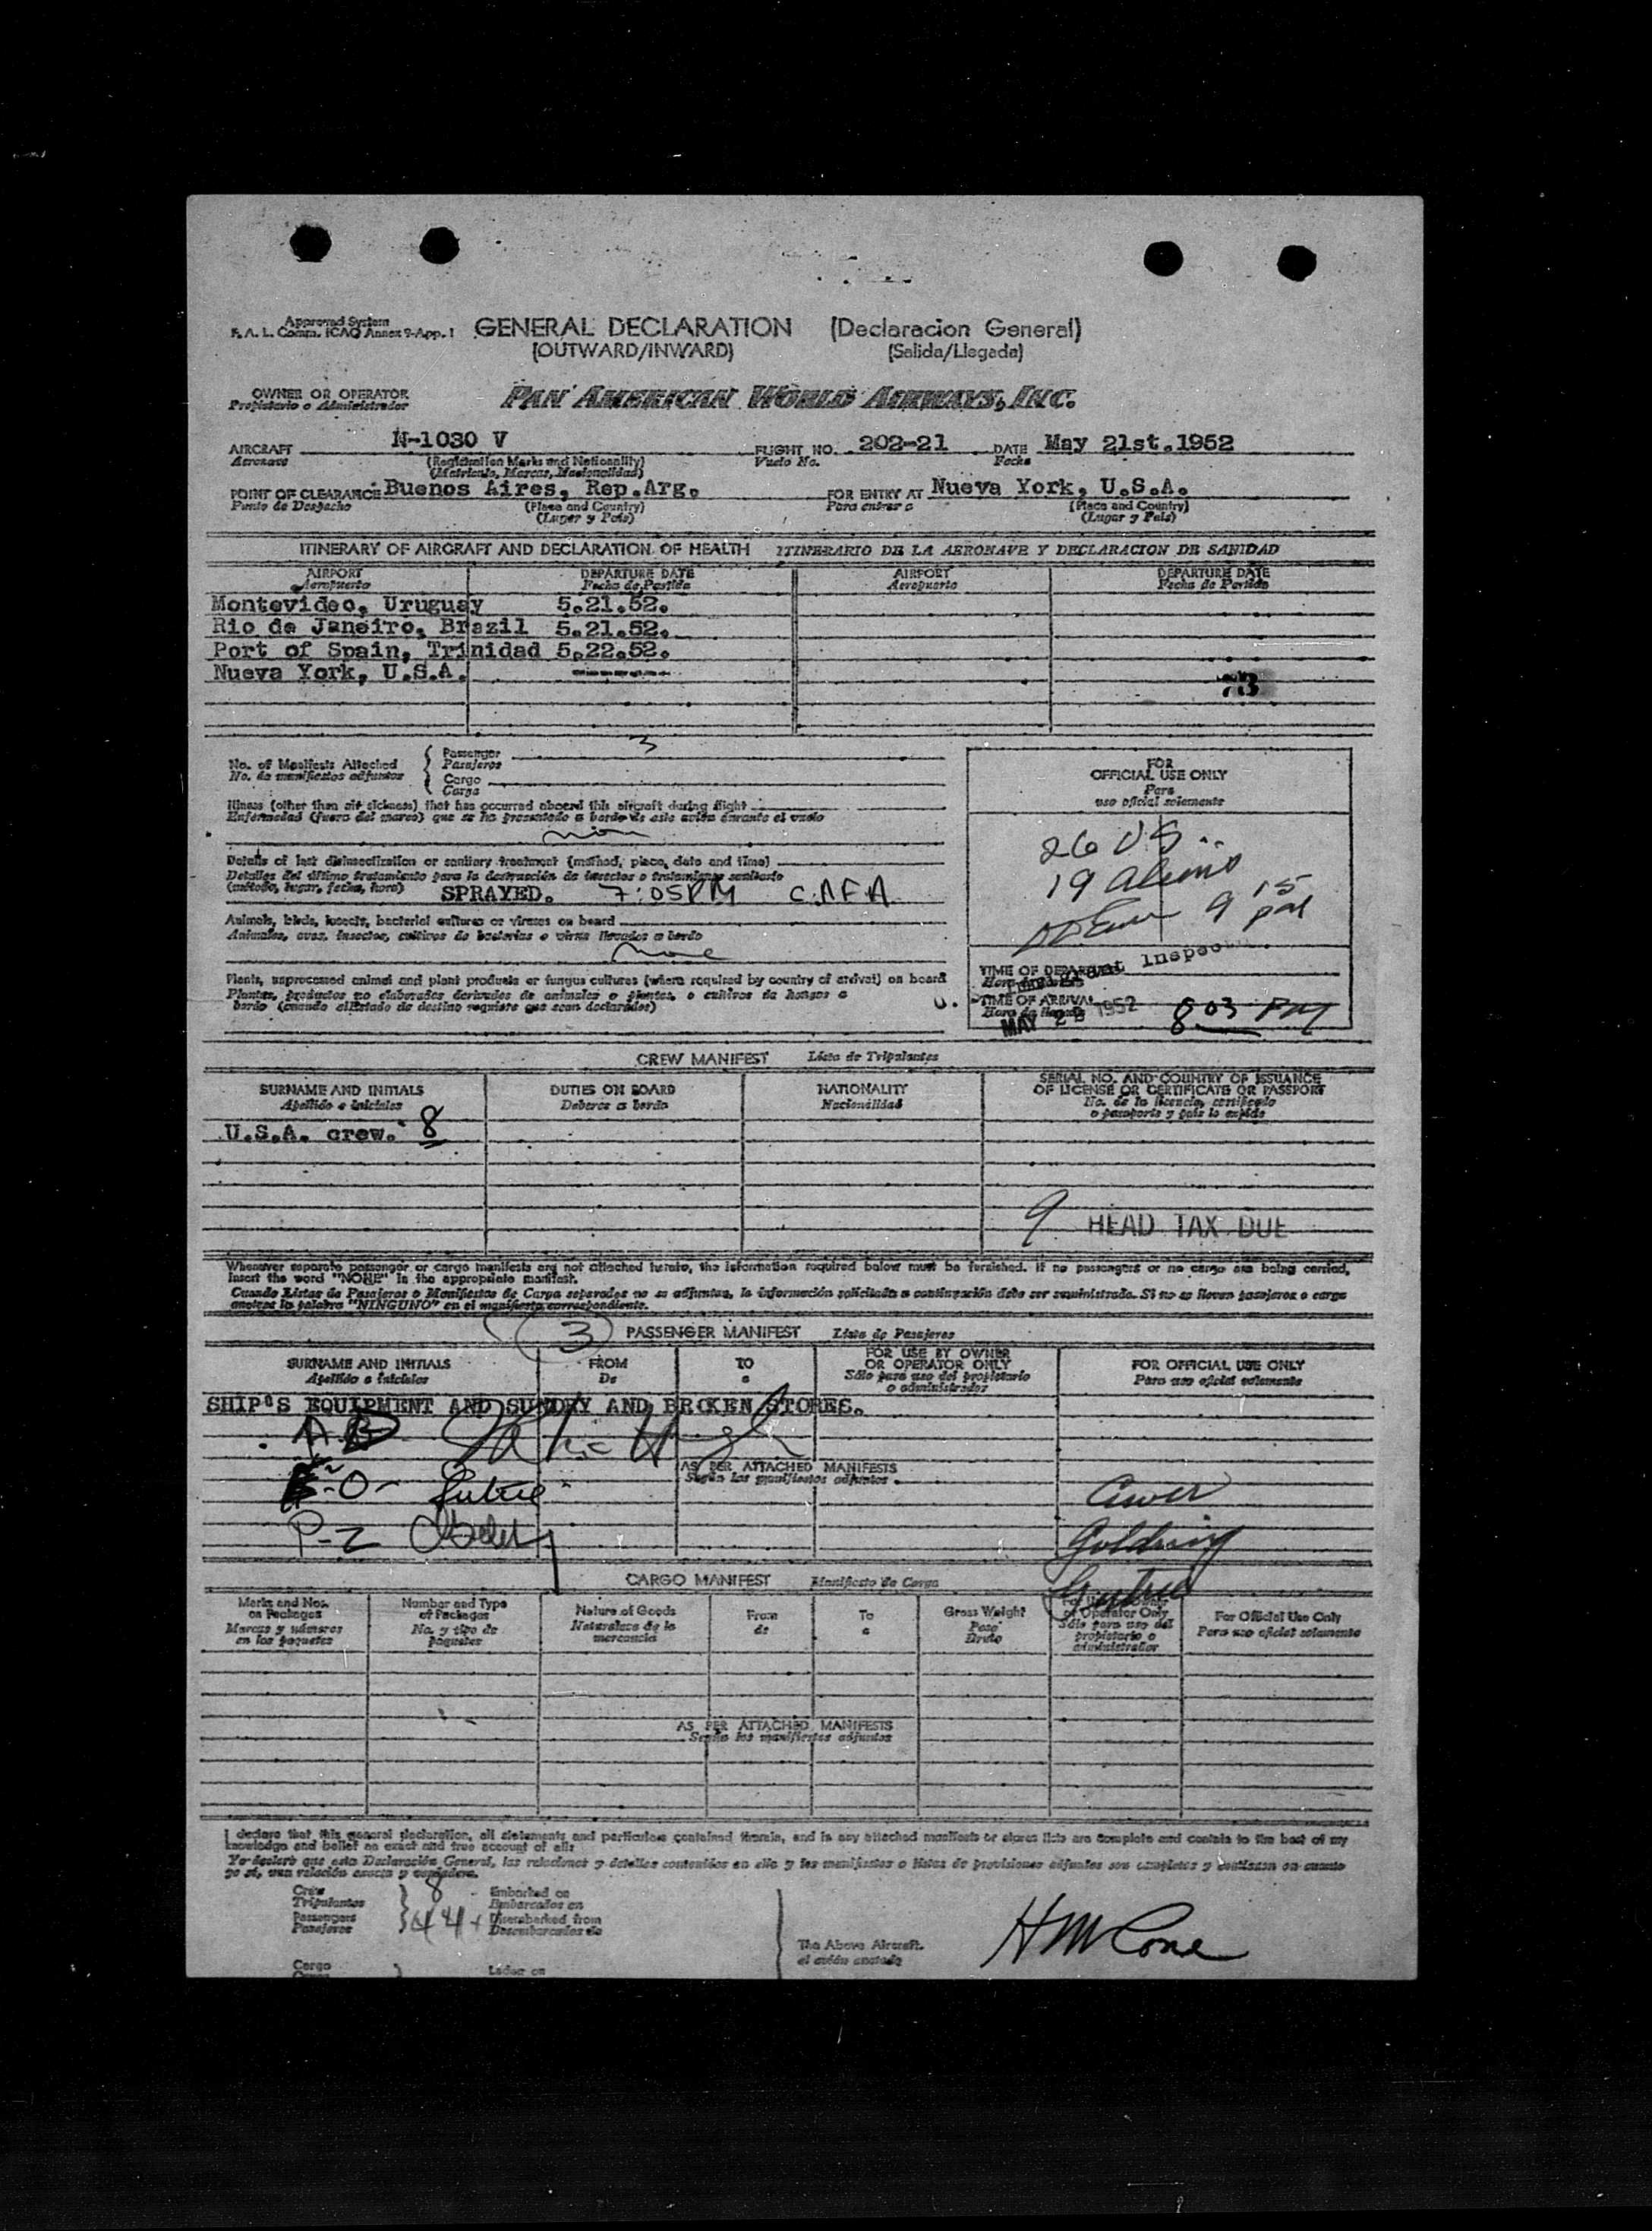 Approved System
F. A. L. Comm. ICAO Annex 9-App. 1
GENERAL DECLARATION (Declaracion General)
(OUTWARD/INWARD) (Salida/Llegada)
OWNER OR OPERATOR
Propietario o Administrador
PAN AMERICAN WORLD AIRWAYS, INC.
AIRCRAFT N-1030 V FLIGHT NO. 202-21 DATE May 21st.1952
Aeronave (Registration Marks and Nationality) Vuelo No. Fecha
(Matricula, Marcas, Nacionalidad)
POINT OF CLEARANCE Buenos Aires, Rep.Arg. FOR ENTRY AT Nueva York, U.S.A.
Punto de Despacho (Place and Country) Para entrar a (Place and Country)
(Lugar y País) (Lugar y País)
ITINERARY OF AIRCRAFT AND DECLARATION OF HEALTH ITINERARIO DE LA AERONAVE Y DECLARACION DE SANIDAD
AIRPORT DEPARTURE DATE AIRPORT DEPARTURE DATE
Aeropuerto Fecha de Partida Aeropuerto Fecha de Partida
Montevideo, Uruguay 5.21.52.
Rio de Janeiro, Brazil 5.21.52.
Port of Spain, Trinidad 5.22.52.
Nueva York, U.S.A. -------
No. of Manifests Attached
No. de manifiestos adjuntos
Passenger 3
Pasajeros
Cargo
Carga
Illness (other than air sickness) that has occurred aboard this aircraft during flight
Enfermedad (fuera del mareo) que se ha presentado a bordo de este avión durante el vuelo
Details of last disinsectization or sanitary treatment (method, place, date and time)
Detalles del último tratamiento para la destrucción de insectos o tratamiento sanitario
(método, lugar, fecha, hora) SPRAYED. 7:05PM C.A.F.A
Animals, birds, insects, bacterial cultures or viruses on board
Animales, aves, insectos, cultivos de bacterias o virus llevados a bordo
None
Plants, unprocessed animal and plant products or fungus cultures (where required by country of arrival) on board
Plantas, productos no elaborados derivados de animales o plantas, o cultivos de hongos a
bordo (cuando el Estado de destino requiere que sean declarados)
FOR
OFFICIAL USE ONLY
Para
uso oficial solamente
26 US
19 aliens
9 15
TIME OF DEPARTURE
Immigrant Inspector
TIME OF ARRIVAL
Hora de llegada
MAY 1952 8 03 PM
CREW MANIFEST Lista de Tripulantes
SURNAME AND INITIALS DUTIES ON BOARD NATIONALITY SERIAL NO. AND COUNTRY OF ISSUANCE
OF LICENSE OR CERTIFICATE OR PASSPORT
Apellido e iniciales Deberes a bordo Nacionalidad No. de la licencia, certificado
o pasaporte y país lo expide
U.S.A. crew. 8
9 HEAD TAX DUE
Whenever separate passenger or cargo manifests are not attached hereto, the information required below must be furnished. If no passengers or no cargo are being carried,
insert the word "NONE" in the appropriate manifest.
Cuando Listas de Pasajeros o Manifiestos de Carga separados no se adjuntan, la información solicitada a continuación debe ser suministrada. Si no se llevan pasajeros o carga
anotese la palabra "NINGUNO" en el manifiesto correspondiente.
3 PASSENGER MANIFEST Lista de Pasajeros
SURNAME AND INITIALS FROM TO FOR USE BY OWNER
OR OPERATOR ONLY FOR OFFICIAL USE ONLY
Apellido e iniciales De a Sólo para uso del propietario
o administrador Para uso oficial solamente
SHIP'S EQUIPMENT AND SUNDRY AND BROKEN STORES.
AS PER ATTACHED MANIFESTS
Según los manifiestos adjuntos
P-2
Golding
CARGO MANIFEST Manifiesto de Carga
Marks and Nos.
on Packages
Marcas y números
en los paquetes
Number and Type
of Packages
No. y tipo de
paquetes
Nature of Goods
Naturaleza de la
mercancia
From
de
To
a
Gross Weight
Peso
Bruto
or Operator Only
Sólo para uso del
propietario o
administrador
For Official Use Only
Para uso oficial solamente
AS PER ATTACHED MANIFESTS
Según los manifiestos adjuntos
I declare that this general declaration, all statements and particulars contained therein, and in any attached manifests or stores lists are complete and contain to the best of my
knowledge and belief an exact and true account of all:
Yo declaro que esta Declaración General, las relaciones y detalles contenidos en ella y los manifiestos o listas de provisiones adjuntos son completos y contienen en cuanto
yo sé, una relación exacta y verdadera.
Crew 8 Embarked on
Tripulantes Embarcados en
Passengers 44+ Disembarked from
Pasajeros Desembarcados de
The Above Aircraft.
el avión anotado
Cargo Laden on